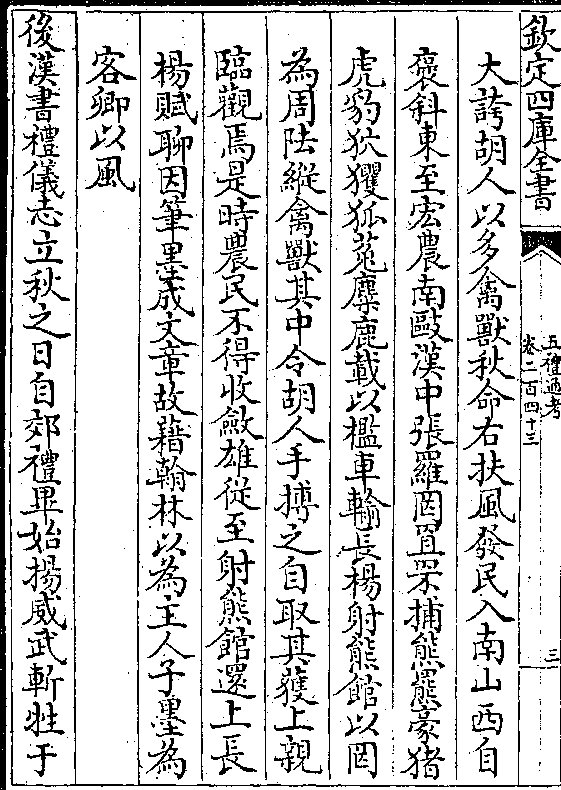 欽定四庫全書
五禮通考
卷二百四十三
三
大誇胡人以多禽獸秋命右扶風發民入南山西自
褒斜東至宏農南敺漢中張羅罔罝罘捕熊羆豪猪
虎豹狖玃狐菟麋鹿載以檻車輸長楊射熊館以罔
為周阹縱禽獸其中令胡人手搏之自取其獲上親
臨觀焉是時農民不得收斂雄從至射熊館還上長
楊賦聊因筆墨成文章故藉翰林以為主人子墨為
客卿以風
後漢書禮儀志立秋之日自郊禮畢始揚威武斬牲于